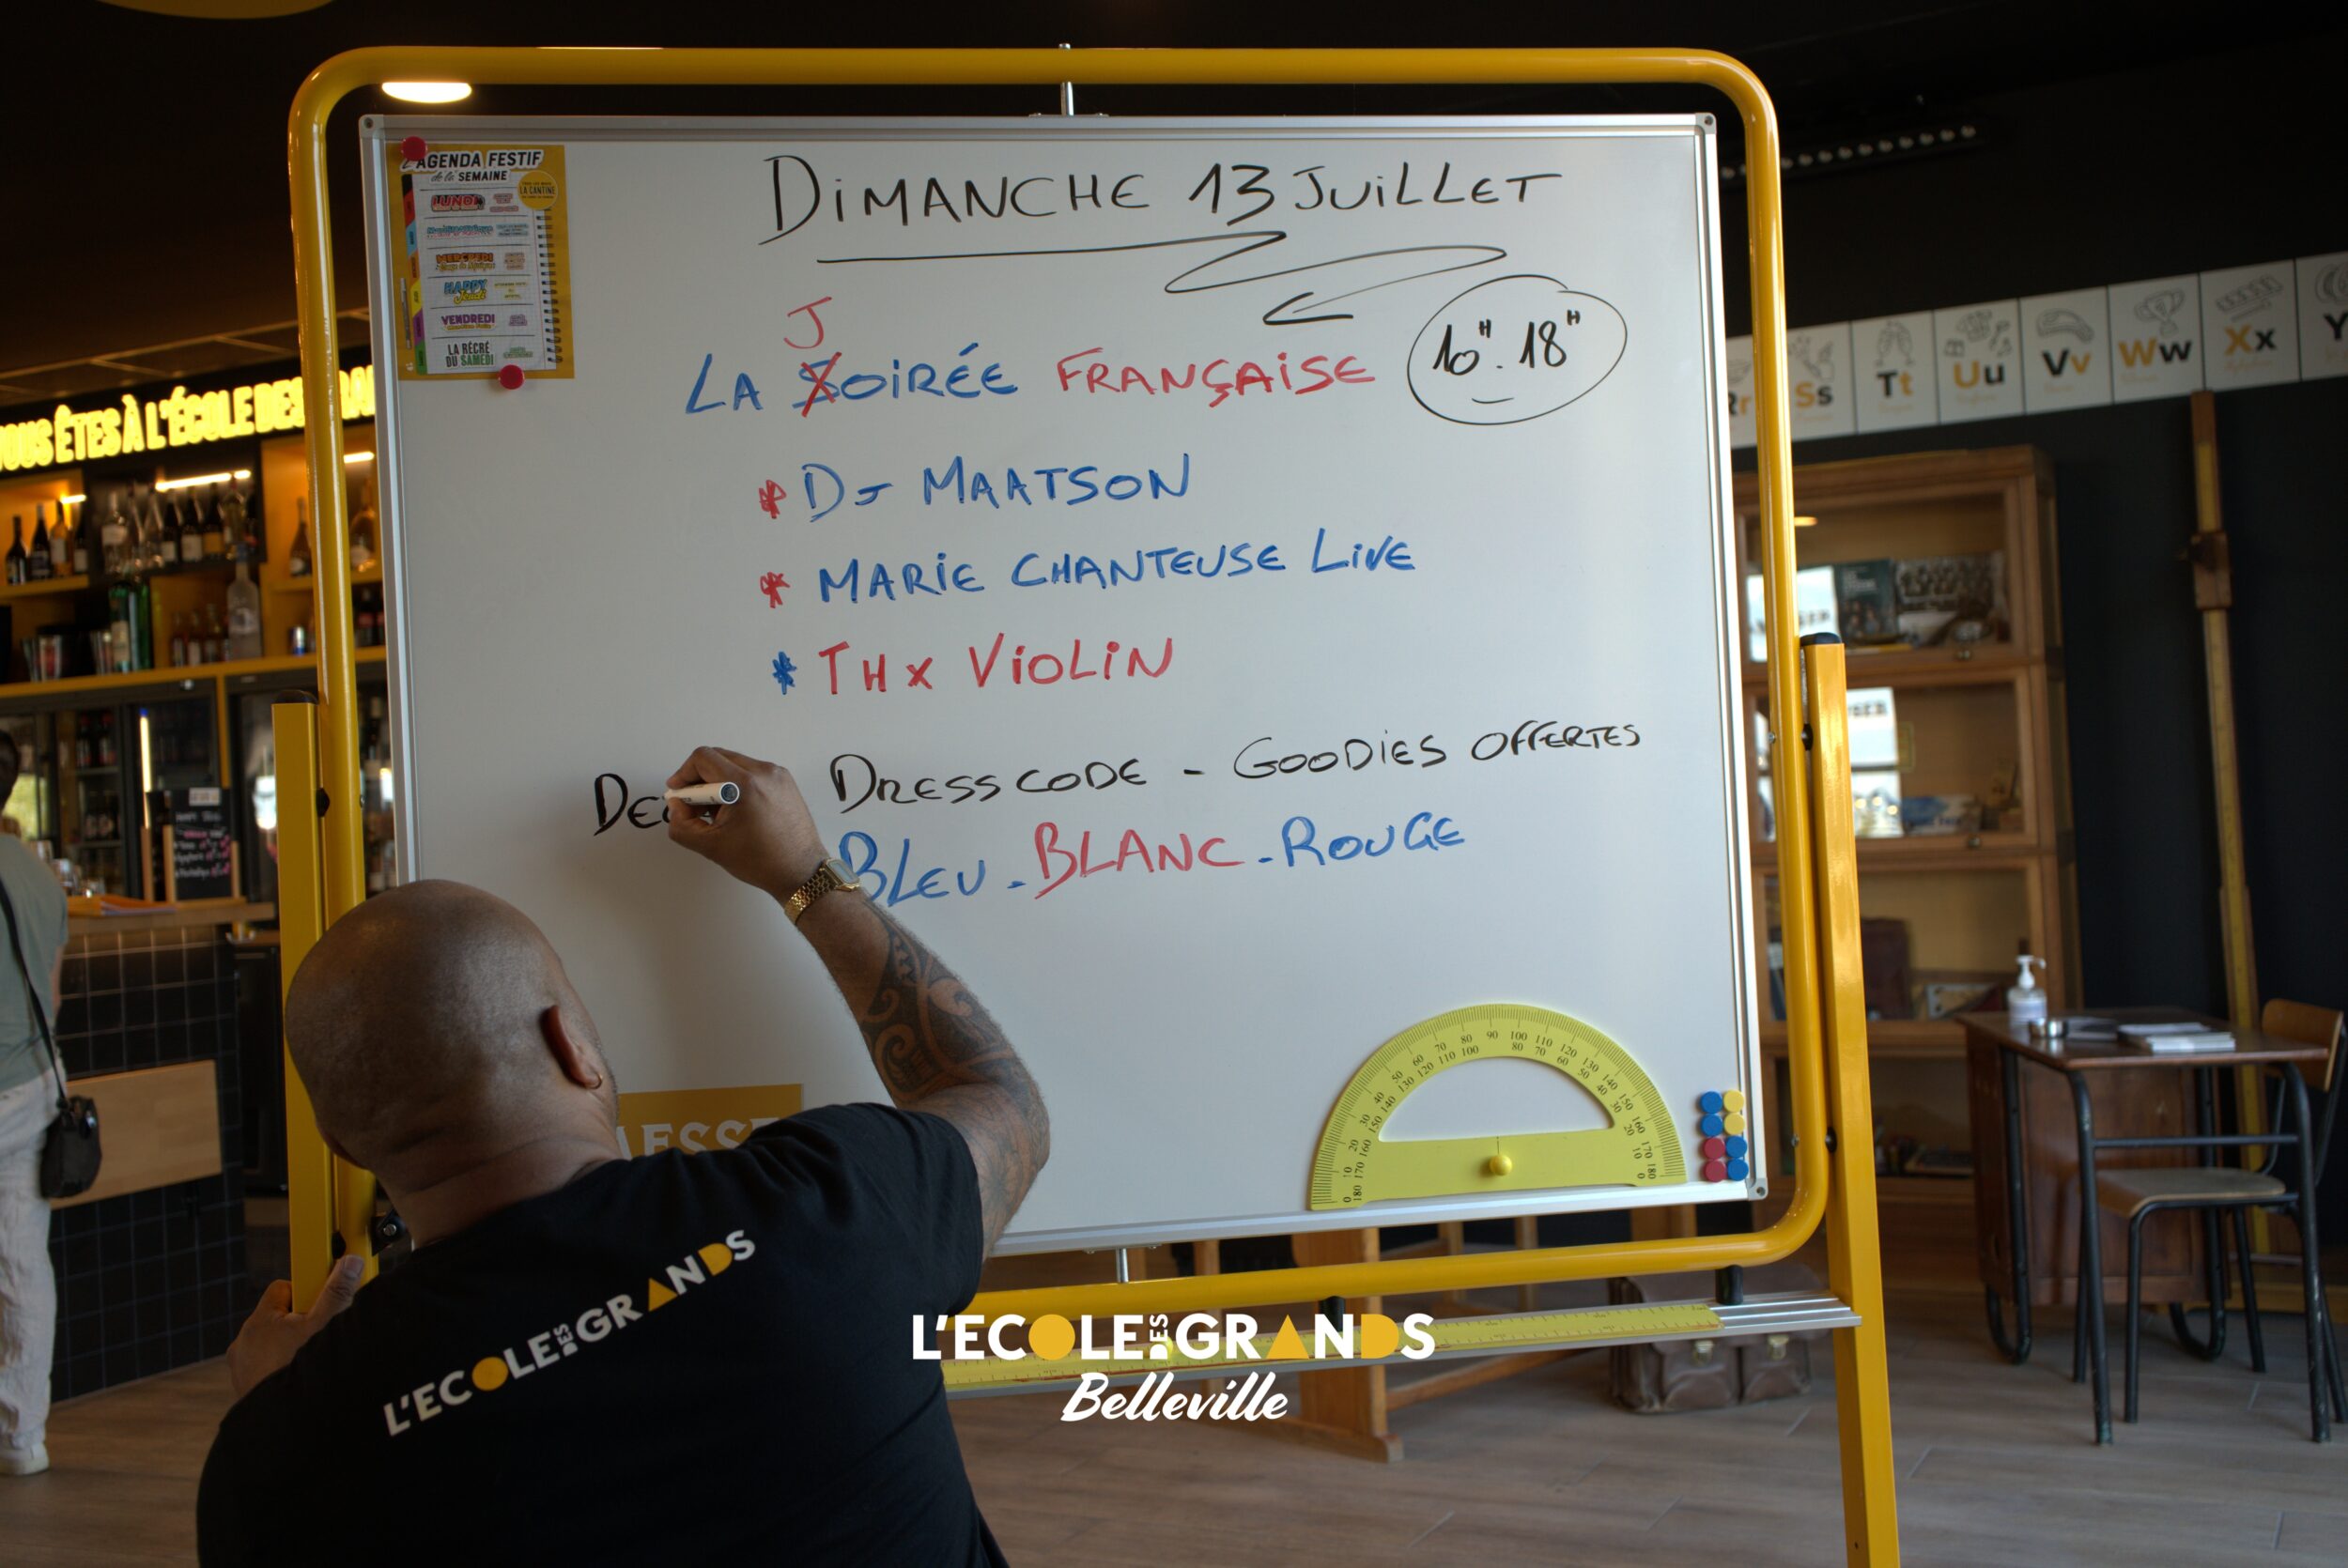 L'AGENDA FESTIF
de la SEMAINE
LUNDI
MERCREDI
HAPPY
Jeudi
VENDREDI
LA RÉCRÉ
DU SAMEDI
DIMANCHE 13 JUILLET
J
LA SOIRÉE FRANÇAISE 10H. 18H
* DJ MAATSON
* MARIE CHANTEUSE LIVE
* THX VIOLIN
DRESS CODE - GOODIES OFFERTES
BLEU - BLANC - ROUGE
VOUS ÊTES À L'ÉCOLE DES
Ss Tt Uu Vv Ww Xx Y
L'ECOLE DES GRANDS
L'ECOLE DES GRANDS
Belleville